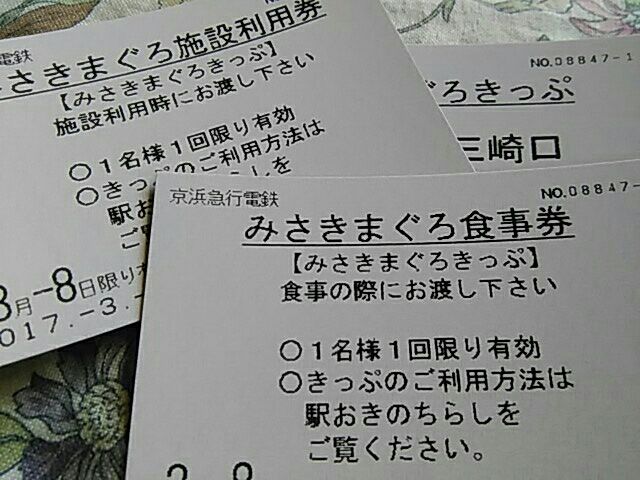 電鉄
みさきまぐろ施設利用券
【みさきまぐろきっぷ】
施設利用時にお渡し下さい
○1名様1回限り有効
○きっぷのご利用方法は
駅お
ご
8月-8日限り有
2017.-3.-
NO.08847-1
ぐろきっぷ
三崎口
京浜急行電鉄
NO.08847-
みさきまぐろ食事券
【みさきまぐろきっぷ】
食事の際にお渡し下さい
○1名様1回限り有効
○きっぷのご利用方法は
駅おきのちらしを
ご覧ください。